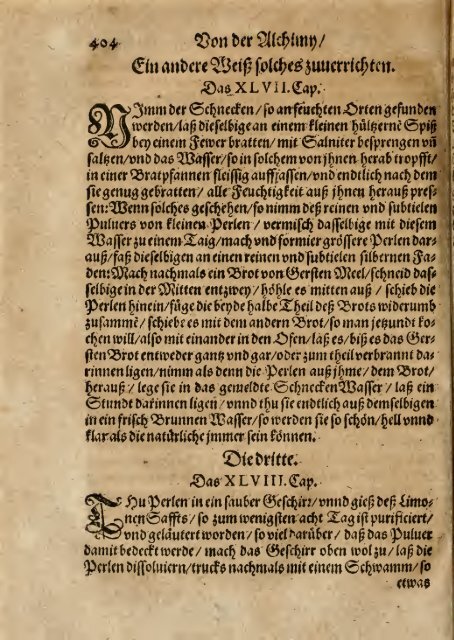 404 Von der Alchimy/
Ein andere Weiß solches zuuerrichten.
Das XLVII. Cap.
NImm der Schnecken/ so an feuchten Orten gefunden
werden/ laß dieselbige an einem kleinen hültzernẽ Spiß
bey einem Fewer bratten/ mit Salniter besprengen vñ
saltzen/ vnd das Wasser/ so in solchem von jhnen herab tropfft/
in einer Bratpfannen fleissig auffassen/ vnd endtlich nach dem
sie genug gebratten/ alle Feuchtigkeit auß jhnen herauß pres-
sen: Wenn solches geschehen/ so nimm deß reinen vnd subtielen
Puluers von kleinen Perlen/ vermisch dasselbige mit diesem
Wasser zu einem Taig/ mach vnd formier grössere Perlen dar-
auß/ faß dieselbigen an einen reinen vnd subtielen silbernen Fa-
den: Mach nachmals ein Brot von Gersten Meel/ schneid das-
selbige in der Mitten entzwey/ höhle es mitten auß/ schieb die
Perlen hinein/ füge die beyde halbe Theil deß Brots widerumb
zusammẽ/ schiebe es mit dem andern Brot/ so man jetzundt ko-
chen will/ also mit einander in den Ofen/ laß es/ biß es das Ger-
sten Brot entweder gantz vnd gar/ oder zum theil verbrannt da-
rinnen ligen/ nimm als denn die Perlen auß jhme/ dem Brot/
herauß/ lege sie in das gemeldte Schnecken Wasser/ laß ein
Stundt darinnen ligen/ vnnd thu sie endtlich auß demselbigen
in ein frisch Brunnen Wasser/ so werden sie so schön/ hell vnnd
klar als die natürliche jmmer sein können.
Die dritte.
Das XLVIII. Cap.
THu Perlen in ein sauber Geschirr/ vnnd gieß deß Limo-
nen Saffts/ so zum wenigsten acht Tag ist purificiert/
vnd geläutert worden/ so viel darüber/ daß das Puluer
damit bedeckt werde/ mach das Geschirr oben wol zu/ laß die
Perlen dissoluiern/ trucks nachmals mit einem Schwamm/ so
etwas